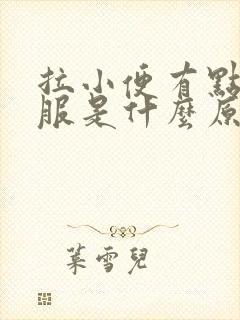 拉小便有點
服是什麼原
葉雪兒